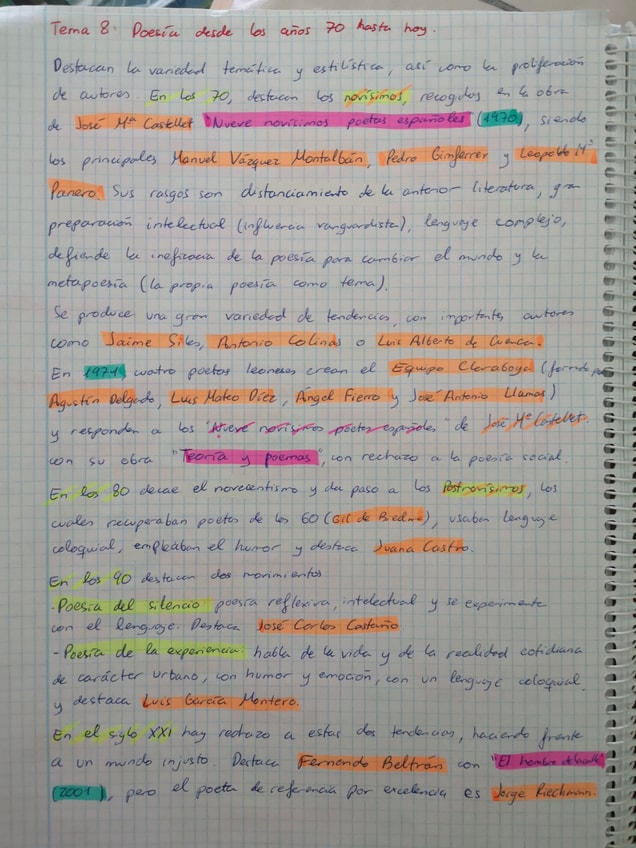 Tema 8: Poesía desde los años 70 hasta hoy.
Destacan la variedad temática y estilística, así como la proliferación
de autores. En los 70, destacan los novísimos, recogidos en la obra
de José Mª Castellet "Nueve novísimos poetas españoles" (1970), siendo
los principales Manuel Vázquez Montalbán, Pedro Gimferrer y Leopoldo Mª
Panero. Sus rasgos son distanciamiento de la anterior literatura, gran
preparación intelectual (influencia vanguardista), lenguaje complejo,
defiende la ineficacia de la poesía para cambiar el mundo y la
metapoesía (la propia poesía como tema).
Se produce una gran variedad de tendencias, con importantes autores
como Jaime Siles, Antonio Colinas o Luis Alberto de Cuenca.
En 1971, cuatro poetas leoneses crean el Equipo Claraboya (formado por
Agustín Delgado, Luis Mateo Díez, Ángel Fierro y José Antonio Llamas)
y responden a los "Nueve novísimo poetas españoles" de José Mª Castellet.
con su obra "Teoría y poemas", con rechazo a la poesía social.
En los 80 decae el novecentismo y da paso a los Postnovísimos, los
cuales recuperaban poetas de los 60 (Gil de Biedma), usaban lenguaje
coloquial, empleaban el humor y destaca Juana Castro.
En los 90 destacan dos movimientos
-Poesía del silencio: poesía reflexiva, intelectual y se experimenta
con el lenguaje. Destaca José Carlos Cataño
-Poesía de la experiencia: habla de la vida y de la realidad cotidiana
de carácter urbano, con humor y emoción, con un lenguaje coloquial
y destaca Luis García Montero.
En el siglo XXI hay rechazo a estas dos tendencias, haciendo frente
a un mundo injusto. Destaca Fernando Beltrán con "El hombre de la calle"
(2001), pero el poeta de referencia por excelencia es Jorge Riechmann.